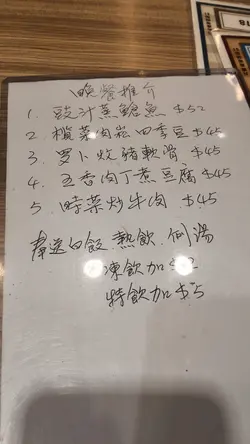 晚餐推介
1. 豉汁蒸鯰魚 $52
2 欖菜肉崧四季豆 $45
3. 罗卜炆豬軟骨 $45
4. 五香肉丁煮豆腐 $45
5. 時菜炒牛肉 $45
奉送白飯 熱飲 例湯
凍飲加
特飲加 $5